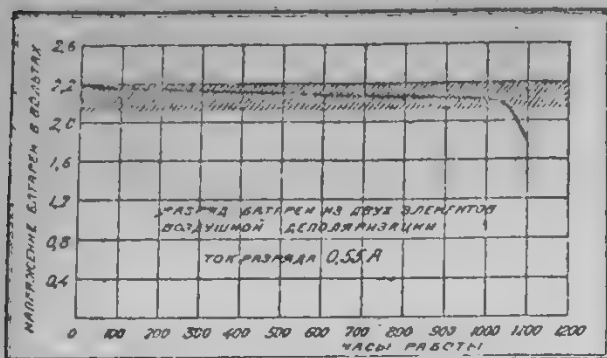 НАПРЯЖЕНИЕ БАТАРЕИ В ВОЛЬТАХ
2,6
2,2
2,0
1,6
1,2
0,8
0,4
РАЗРЯД БАТАРЕИ ИЗ ДВУХ ЭЛЕМЕНТОВ
ВОЗДУШНОЙ ДЕПОЛЯРИЗАЦИИ
ТОК РАЗРЯДА 0,55 А
0 100 200 300 400 500 600 700 800 900 1000 1100 1200
ЧАСЫ РАБОТЫ